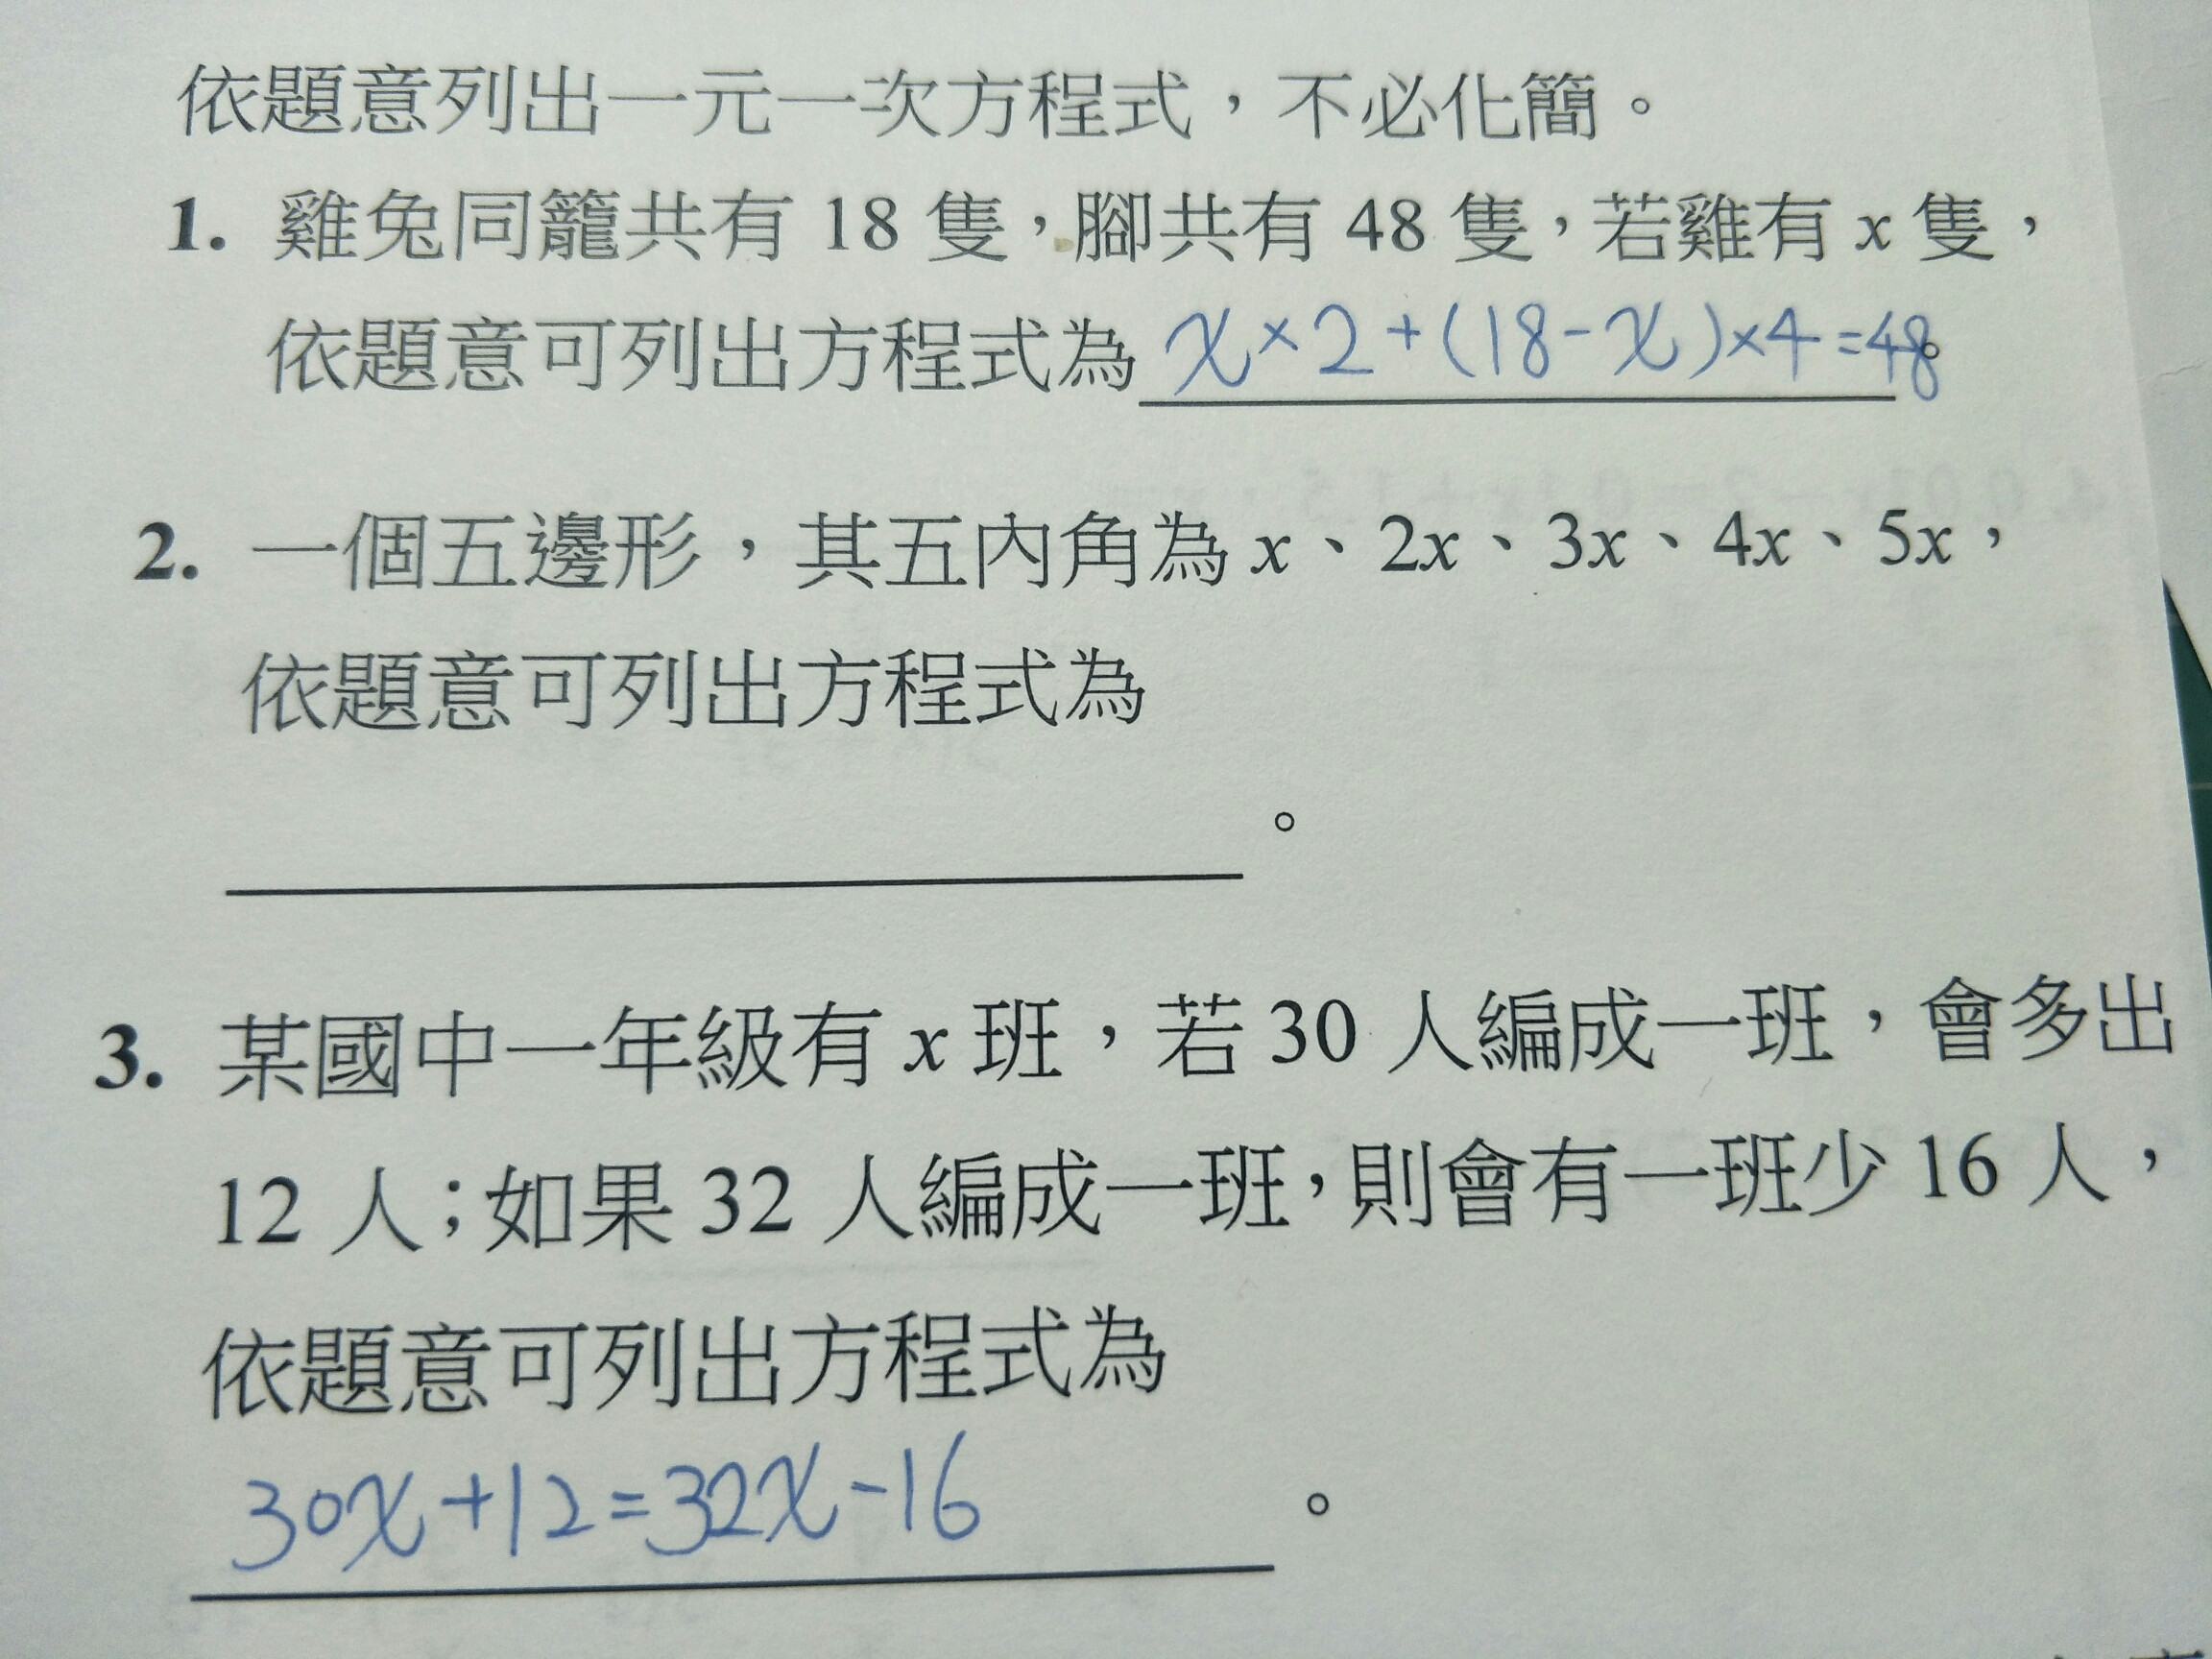 依題意列出一元一次方程式，不必化簡。
1. 雞兔同籠共有 18 隻，腳共有 48 隻，若雞有 x 隻，
依題意可列出方程式為 x×2+(18-x)×4=48。
2. 一個五邊形，其五內角為 x、2x、3x、4x、5x，
依題意可列出方程式為
。
3. 某國中一年級有 x 班，若 30 人編成一班，會多出
12 人；如果 32 人編成一班，則會有一班少 16 人，
依題意可列出方程式為
30x+12=32x-16 。